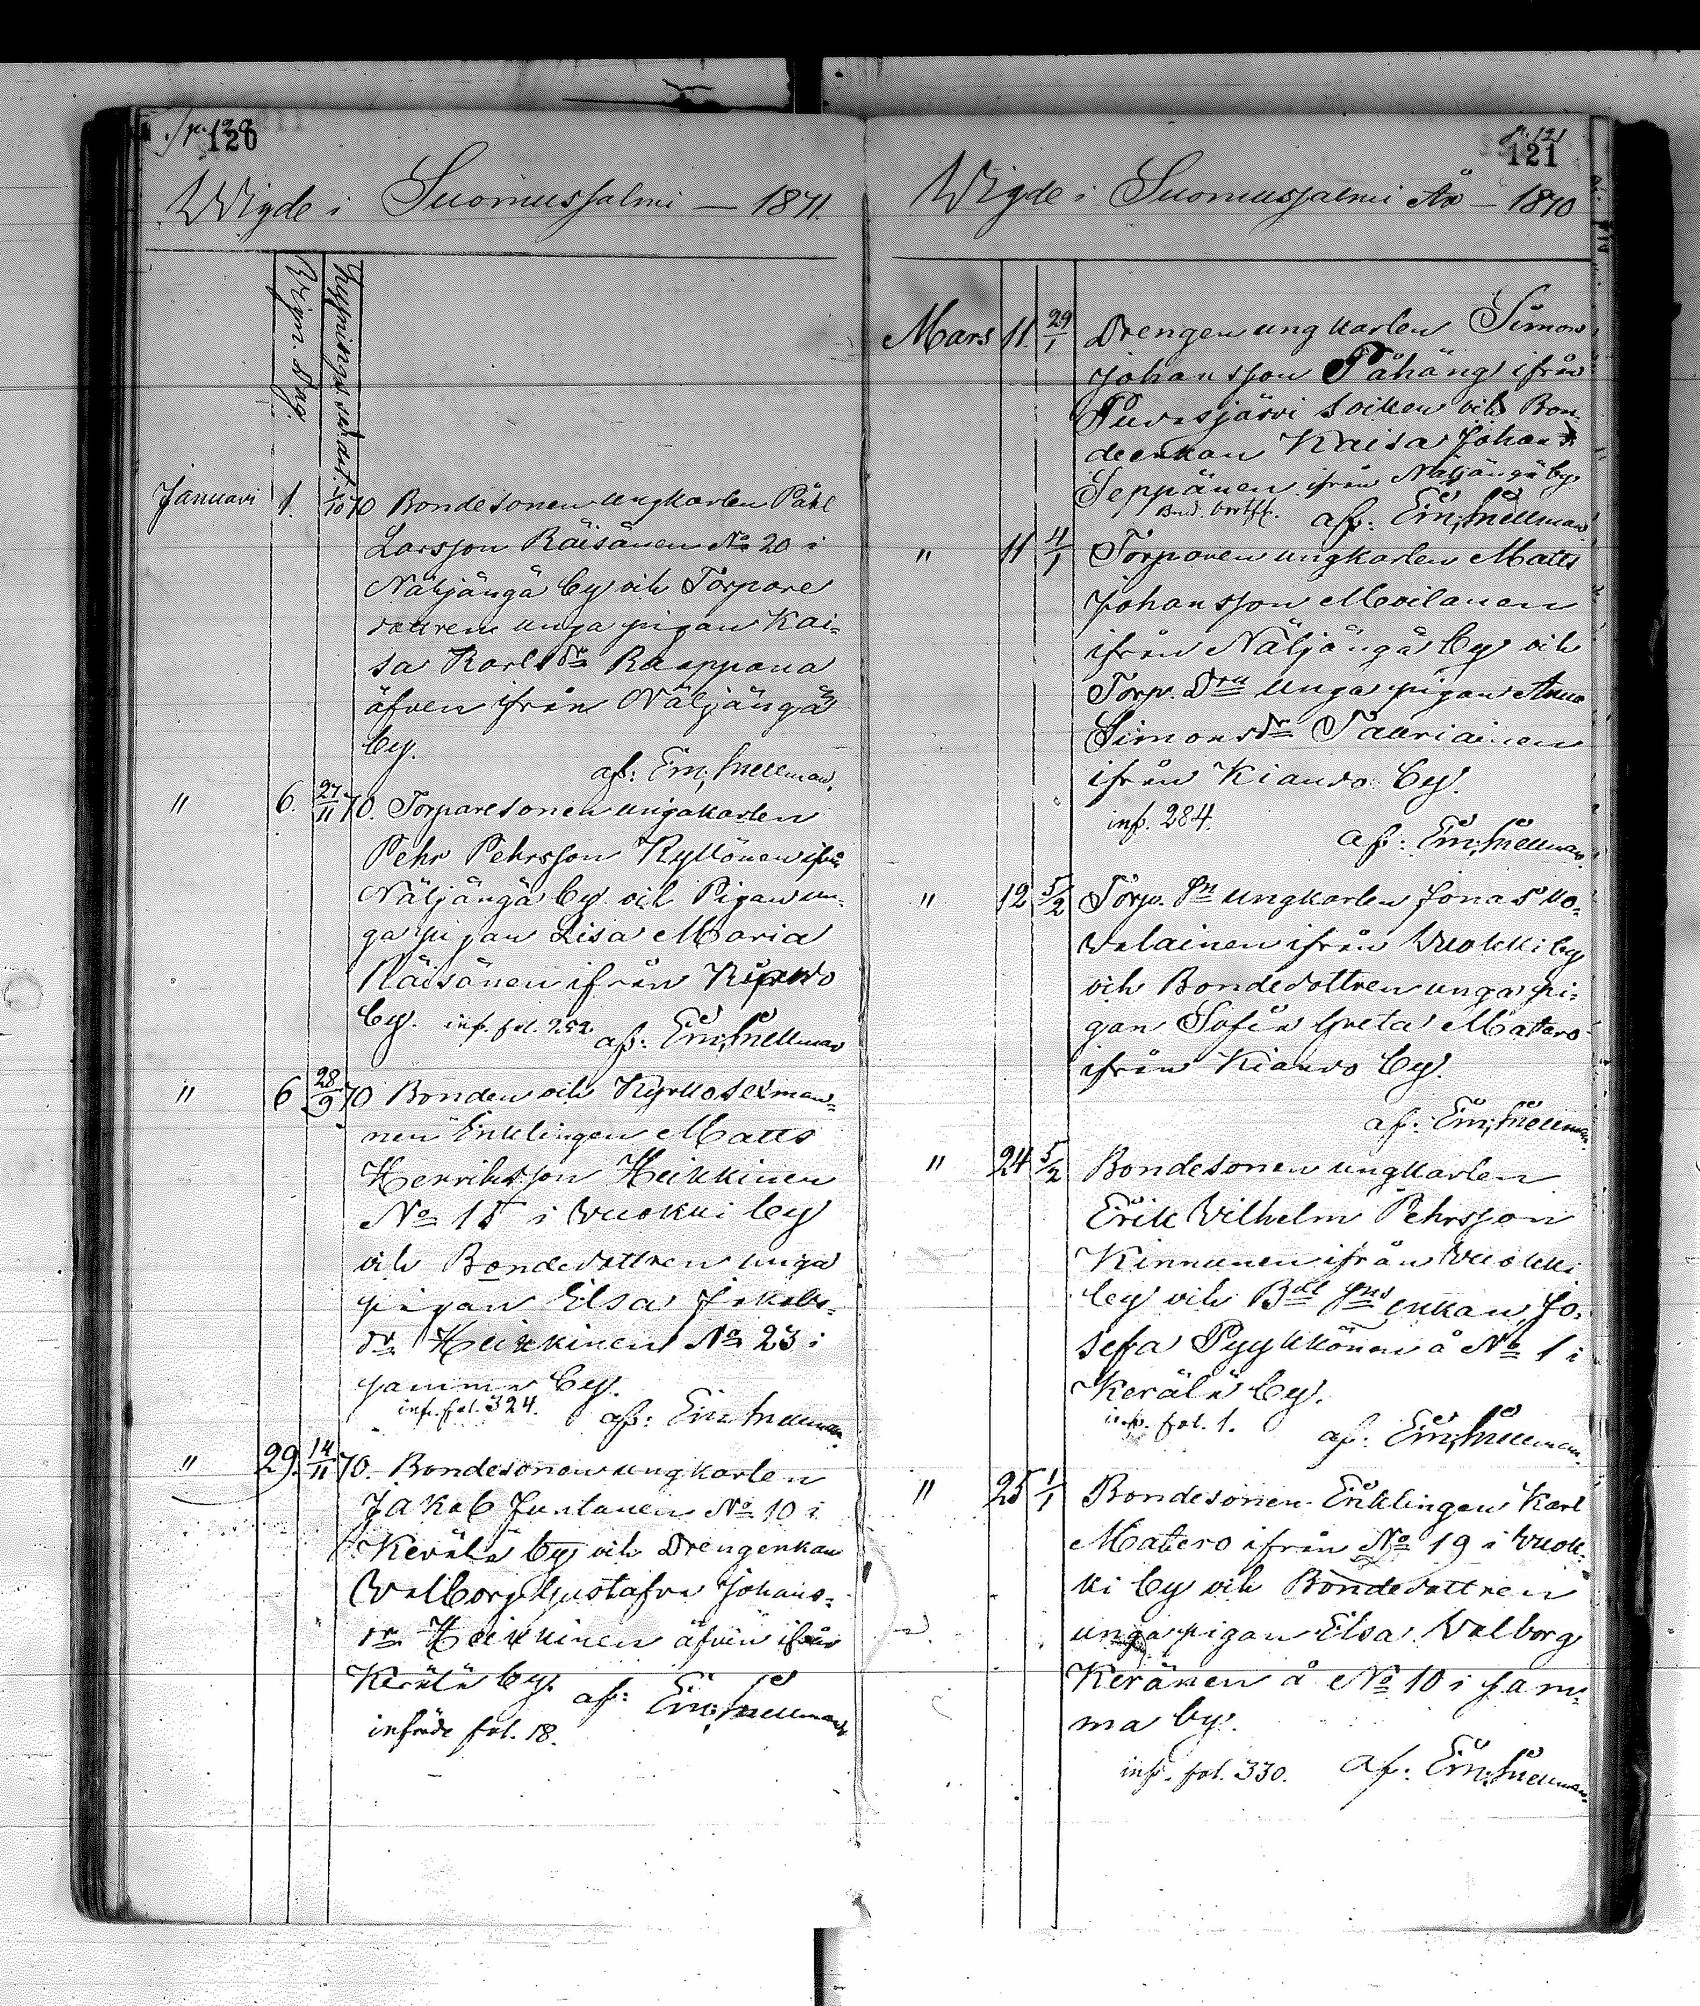 p. 120
120
Wigde i Suomussalmi — 1871.
Wign. Dag.
Lysnings sedart.
Januari 1. 1/10 70 Bondesonen ungkarlen Påhl
Larsson Räisänen No 20 i
Näljängä by och Torpare
dottren unga pigan Kai-
sa Karlsdr Raappana
äfven ifrån Näljängä
by.
af: Em; Snellman.
" 6. 27/11 70. Torparesonen ungakarlen
Pehr Pehrsson Kyllönen ifrån
Näljängä by och Pigan un-
ga pigan Lisa Maria
Räisänen ifrån Kiando
by. inf. fol. 252. af: Em; Snellman
" 6 28/9 70 Bonden och Kyrkosexman-
nen Enklingen Matts
Henriksson Heikkinen
No 15 i Wuokki by
och Bondedottren unga
pigan Elsa Jakobs-
dr Heikkinen No 23 i
samma by.
inf. fol. 324. af: Em Snellman.
" 29. 14/11 70. Bondesonen ungkarlen
Jakob Juntunen No 10 i
Kerälä by och Drengenkan
Walborg Gustafva Johans-
dr Heikkinen äfven ifrån
Kerälä by. af: Em; Snellman
införde fol. 18.
p. 121
121
Wigde i Suomussalmi År — 1870
Mars 11. 29/1 Drengen ungkarlen Simon
Johansson Påhäng ifrån
Pudasjärvi socken och Bon-
deenkan Kaisa Johansdr
Seppänen ifrån Näljängä by.
af: Em; Snellman
" 11 4/1 Torparen ungkarlen Matts
Johansson Moilanen
ifrån Näljängä by och
Torp. Dru unga pigan Anna
Simonsdr Tauriainen
ifrån Kiando by.
inf. 284.
af: Em; Snellman.
" 12 5/2 Torp. Sn ungkarlen Jonas Mo-
valainen ifrån Wuokki by
och Bondedottren unga pi-
gan Sofia Greta Matero
ifrån Kiando by.
af: Em; Snellman
" 24 5/2 Bondesonen ungkarlen
Erik Wilhelm Pehrsson
Kinnunen ifrån Wuokki
by och Bde Sns enkan Jo-
sefa Pyykkönen å No 1 i
Kerälä by.
inf. fol. 1. af: Em; Snellman.
" 25 1/1 Bondesonen Enklingen Karl
Matero ifrån No 19 i Wuok-
ki by och Bondedottren
unga pigan Elsa Walborg
Keränen å No 10 i sam-
ma by.
inf. fol. 330. af: Em; Snellman.